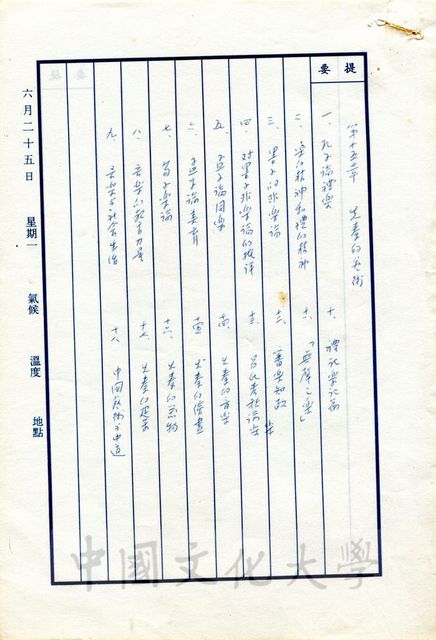 提要
第十五章 先秦的藝術
一、孔子論禮樂
二、樂的精神和禮的精神
三、墨子的非樂論
四、對墨子非樂論的批評
五、孟子論同樂
六、孟子論美育
七、荀子樂論
八、音樂的教育力量
九、音樂與社會生活
十、禮記樂記篇
十一、「無聲之樂」
十二、審樂知政
十三、呂氏春秋論樂
十四、先秦的音樂
十五、先秦的繪畫
十六、先秦的
十七、先秦的
十八、中國藝術
六月二十五日 星期一 氣候 溫度 地點
中國文化大學